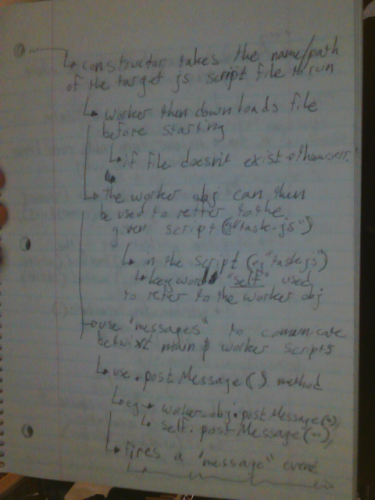 ↳ constructor takes the name/path
of the target js script file to run
↳ worker then downloads file
before starting
↳ if file doesn't exist
↳ the worker obj can then
be used to reffer to the
given script ("task.js")
↳ in the script (eg "task.js")
↳ keyword "self" used
to refer to the worker obj
↳ use "messages" to comunicate
betwixt main & worker scripts
↳ use .postMessage() method
↳ eg → workerobj.postMessage(
↳ self.postMessage(
↳ fires a "message" event